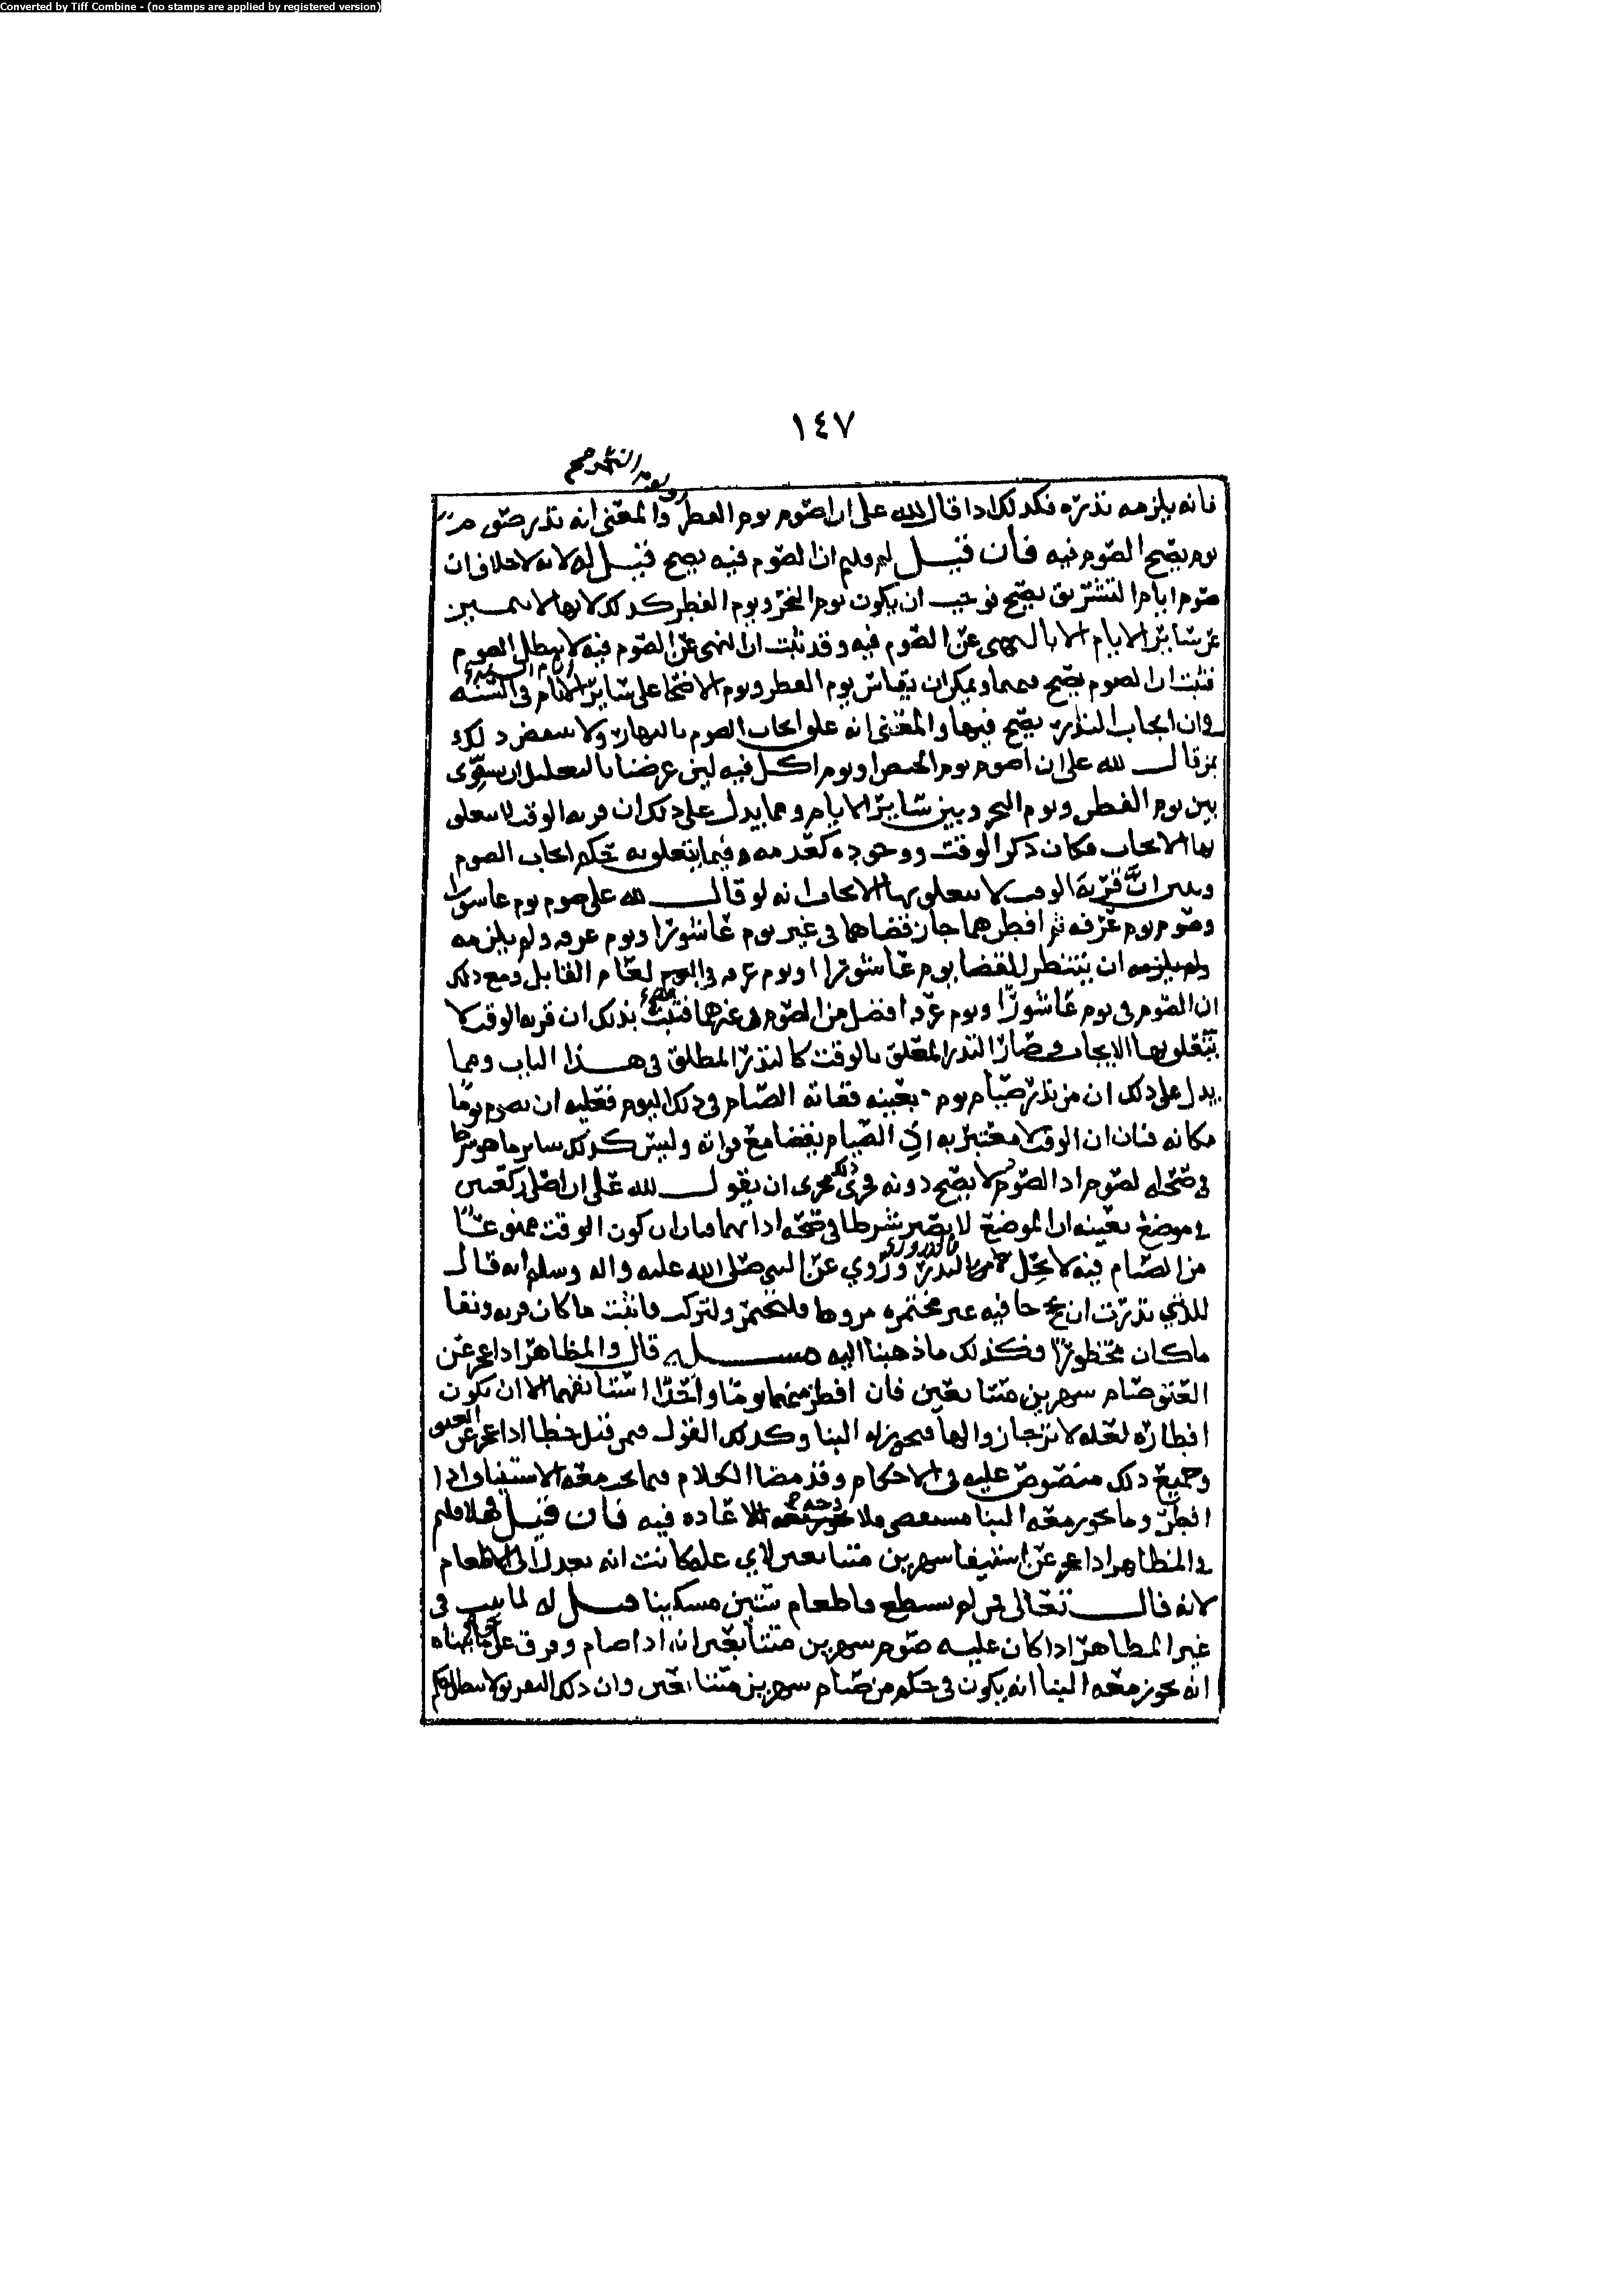 Converted by Tiff Combine - (no stamps are applied by registered version)
١٤٧
او يوم النحر صح
فانه يلزمه نذره فكذلك اذا قال لله علي ان اصوم يوم الفطر والمعنى انه نذر صوم
يوم يصح الصوم فيه فان قيل لم قلتم ان الصوم فيه يصح قيل له لانه لا خلاف ان
صوم ايام التشريق يصح فوجب ان يكون يوم النحر ويوم الفطر كذلك لانها لا
عن سائر الايام الا بالنهي عن الصوم فيه وقد ثبت ان النهي عن الصوم فيه لا يبطل الصوم
فثبت ان الصوم يصح فيهما ويمكن ان يقاس يوم الفطر ويوم الاضحا على سائر الايام في السنه
وان ايجاب النذر يصح فيها والمعنى انه علق ايجاب الصوم بالنهار ولا ينتقض ذلك
بمن قال لله علي ان اصوم يوم اكل فيه لئن غرضنا بالتعليل ان يسوى
بين يوم الفطر ويوم النحر وبين سائر الايام ومما يدل على ذلك ان قربه الوقت لا يتعلق
بها الايجاب فكان ذكر الوقت ووجوده كعدمه فيما يتعلق به حكم ايجاب الصوم
ويبين ان قربة الوقت لا يتعلق بها الايجاب انه لو قال لله علي صوم يوم عاشورا
وصوم يوم عرفه ثم افطرهما جاز قضاهما في غير يوم عاشورا ويوم عرفه ولم يلزمه
ولم يلزمه ان ينتظر للقضا يوم عاشورا او يوم عرفه في العام القابل ومع ذلك
ان الصوم في يوم عاشورا ويوم عرفه افضل من الصوم في غيرهما فثبت بذلك ان قربه الوقت لا
يتعلق بها الايجاب وصار النذر المعلق بالوقت كالنذر المطلق في هذا الباب ومما
يدل على ذلك ان من نذر صيام يوم بعينه ففاته الصيام في ذلك اليوم فعليه ان يصوم يوما
مكانه فبان ان الوقت لا معتبر به اذ الصيام يقضا مع فواته وليس كذلك سائر ما هو شرط
في صحة الصوم اذ الصوم لا يصح دونه فجرى ذلك مجرى ان يقول لله علي ان اصلي ركعتين
في موضع بعينه ان الموضع لا يصير شرطا في صحة ادائهما فبان ان كون الوقت ممنوعا
من الصيام فيه لا يخل بالنذر وروي عن النبي صلى الله عليه واله وسلم انه قال
للذي نذرت ان تحج حافيه غير مختمره مروها فلتختمر ولتركب فاثبت ما كان قربه ونفا
ما كان محظورا فكذلك ما ذهبنا اليه مسله قال والمظاهر اذا عجز عن
العتق صام شهرين متتابعين فان افطر منهما يوما واحدا استانفهما الا ان يكون
افطاره لعله لا يرجا زوالها فيجوز له البنا وكذلك القول فيمن قتل خطا اذا عجز عن العتق
وجميع ذلك منصوص عليه في الاحكام وقد مضا الكلام فيما يجب معه الاستيناف اذا
افطر وما يجوز معه البنا مستقصى فلا وجه الاعاده فيه فان قيل فهلا قلتم
في المظاهر اذا عجز عن استيناف شهرين متتابعين لاي عله كانت انه يعدل الى الاطعام
لانه قال تعالى فمن لم يستطع فاطعام ستين مسكينا قيل له لما ثبت في
غير المظاهر اذا كان عليه صوم شهرين متتابعين انه اذا صام وفرق على ما بيناه
انه يجوز معه البنا انه يكون في حكم من صام شهرين متتابعين وان ذلك التفريق لا يبطل حكم